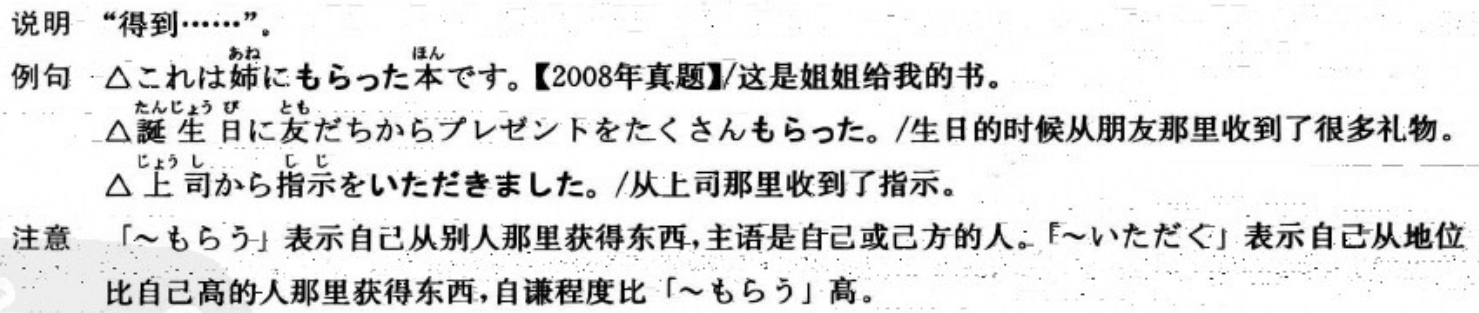 说明 “得到……”。
例句 △これは姉にもらった本です。【2008年真题】/这是姐姐给我的书。
あね ほん
△誕生日に友だちからプレゼントをたくさんもらった。/生日的时候从朋友那里收到了很多礼物。
たんじょう び とも
△上司から指示をいただきました。/从上司那里收到了指示。
じょう し し じ
注意 「～もらう」表示自己从别人那里获得东西,主语是自己或己方的人。「～いただく」表示自己从地位
比自己高的人那里获得东西,自谦程度比「～もらう」高。